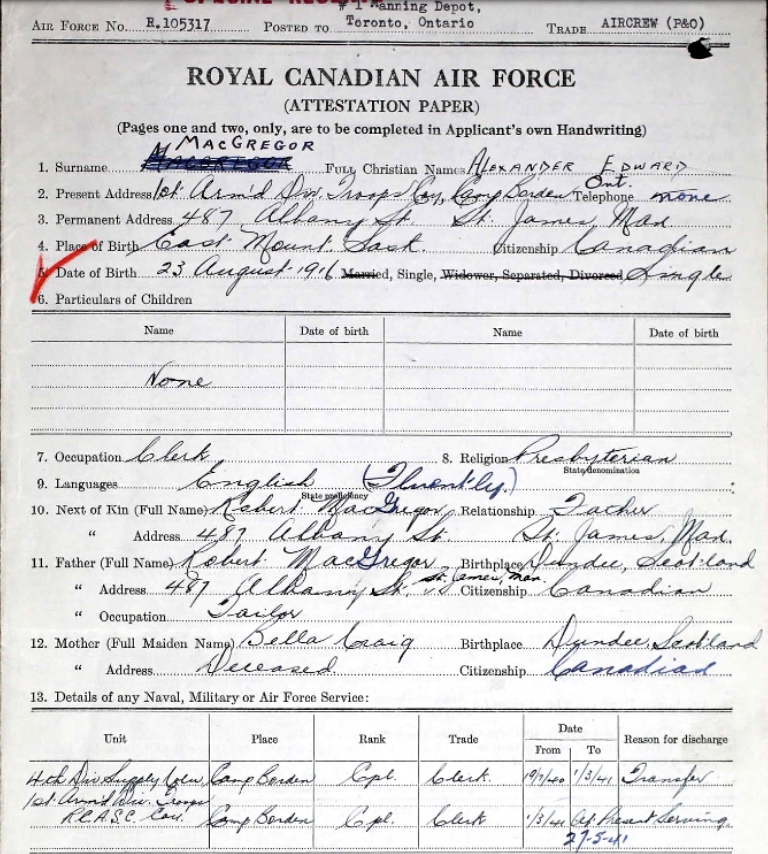 # 1 Manning Depot,
AIR FORCE NO. R.105317 POSTED TO Toronto, Ontario TRADE AIRCREW (P&O)
ROYAL CANADIAN AIR FORCE
(ATTESTATION PAPER)
(Pages one and two, only, are to be completed in Applicant's own Handwriting)
MACGREGOR
1. Surname MACGREGOR FULL Christian Names ALEXANDER EDWARD
Ont.
2. Present Address 1st Arm'd Div. Troops Coy, Camp Borden Telephone none
3. Permanent Address 487 Albany St. St. James, Man
4. Place of Birth East Mount Sask. Citizenship Canadian
5. Date of Birth 23 August 1916 Married, Single, Widower, Separated, Divorced Single
6. Particulars of Children
Name Date of birth Name Date of birth
None
7. Occupation Clerk 8. Religion Presbyterian
State denomination
9. Languages English (Fluently.)
State proficiency
10. Next of Kin (Full Name) Robert MacGregor Relationship Father
" Address 487 Albany St. St. James, Man.
11. Father (Full Name) Robert MacGregor Birthplace Dundee, Scotland
" Address 487 Albany St. St. James, Man. Citizenship Canadian
" Occupation Tailor
12. Mother (Full Maiden Name) Bella Craig Birthplace Dundee, Scotland
" Address Deceased. Citizenship Canadian
13. Details of any Naval, Military or Air Force Service:
Date
Unit Place Rank Trade From To Reason for discharge
4th Div Supply Camp Borden Cpl. Clerk. 19/7/40 1/3/41 Transfer
1st Arm'd Div. Troops
R.C.A.S.C. Camp Borden Cpl. Clerk 1/3/41 At Present Serving.
27-5-41